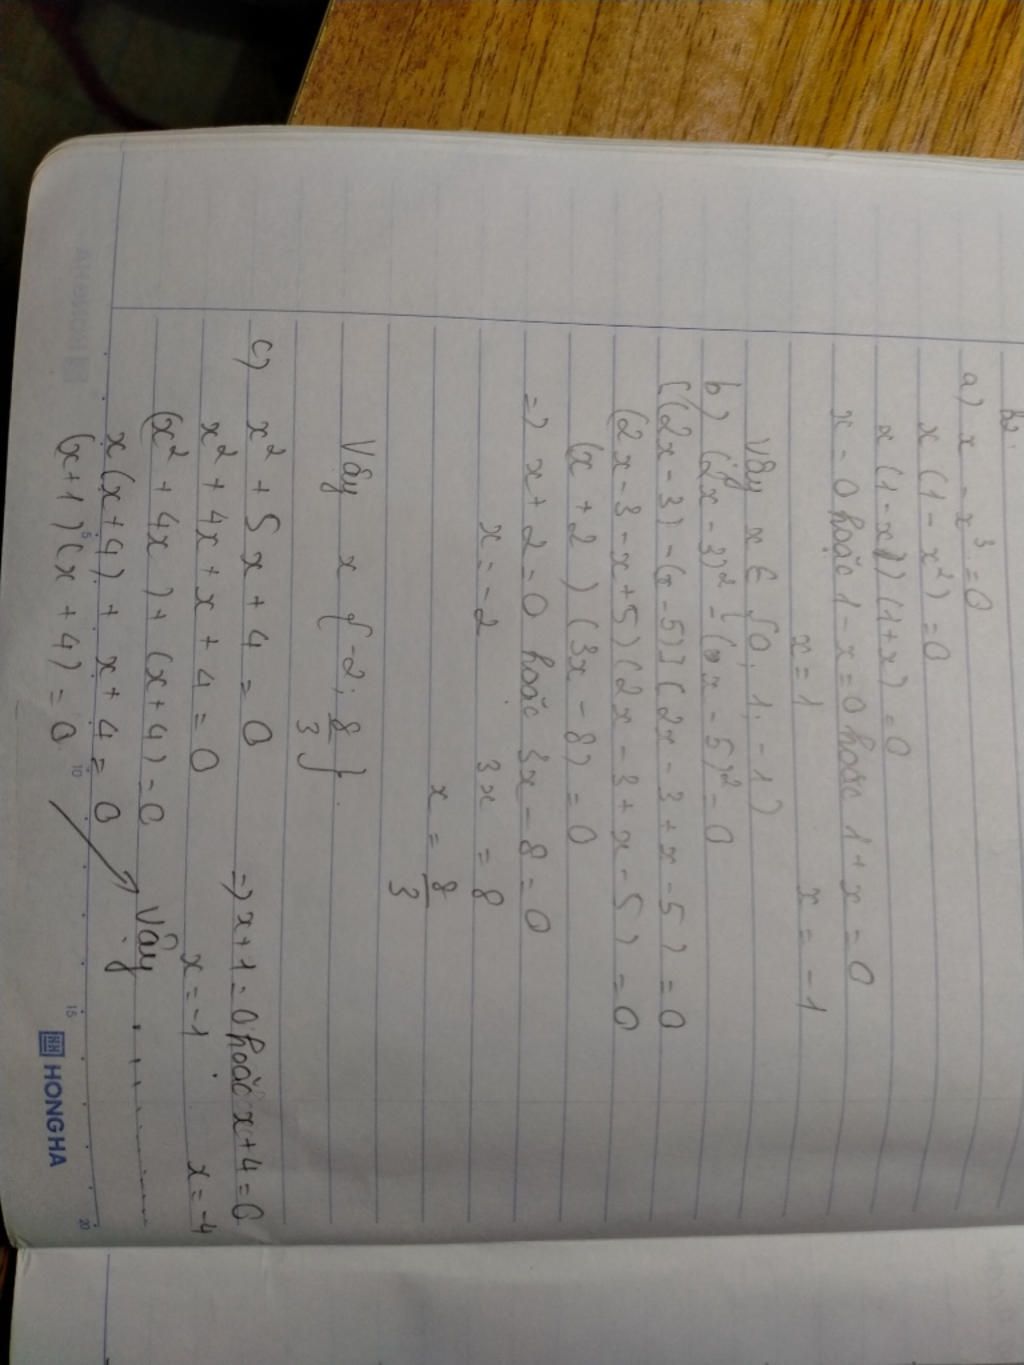 B2:
a) x - x³ = 0
x (1 - x²) = 0
x (1 - x) (1 + x) = 0
x = 0 hoặc 1 - x = 0 hoặc 1 + x = 0
x = 1 x = -1
Vậy x ∈ {0; 1; -1}
b) (2x - 3)² - (x - 5)² = 0
[(2x - 3) - (x - 5)] (2x - 3 + x - 5) = 0
(2x - 3 - x + 5) (2x - 3 + x - 5) = 0
(x + 2) (3x - 8) = 0
=> x + 2 = 0 hoặc 3x - 8 = 0
x = -2 3x = 8
x = 8/3
Vậy x {-2; 8/3}.
c) x² + 5x + 4 = 0
x² + 4x + x + 4 = 0
(x² + 4x) + (x + 4) = 0
x (x + 4) + x + 4 = 0
(x + 1) (x + 4) = 0
=> x + 1 = 0 hoặc x + 4 = 0
x = -1 x = -4
Vậy
5 10 15 20
HH HONGHA